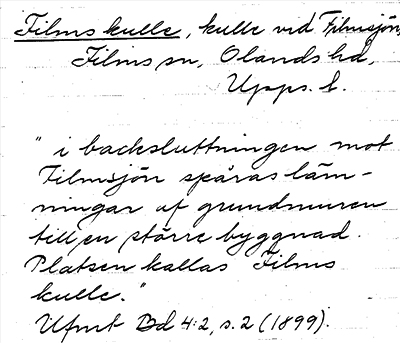 Films kulle, kulle vid Filmsjön,
Films sn, Olands hd,
Upps. l.
"i backsluttningen mot
Filmsjön spåras läm-
ningar af grundmuren
till en större byggnad.
Platsen kallas Films
kulle."
Ufmt Bd 4:2, s. 2 (1899).